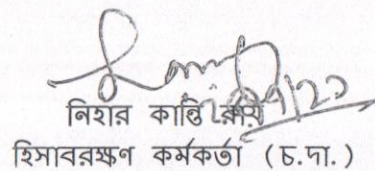 নিহার কান্তি রায়
হিসাবরক্ষণ কর্মকর্তা (চ.দা.)